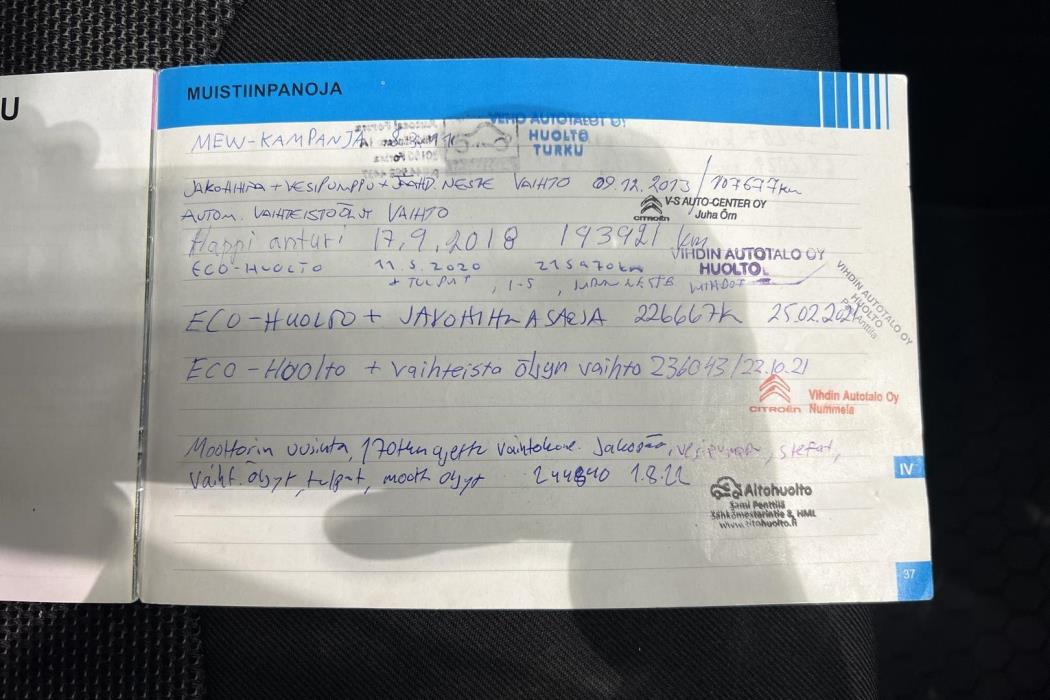 U
MUISTIINPANOJA
VEHO AUTOTALOT OY
HUOLTO
TURKU
MEW-KAMPANJA
JAKOHIHNA + VESIPUMPPU + JÄÄHD. NESTE VAIHTO 09.12.2013 / 107677km
V-S AUTO-CENTER OY
Juha Örn
CITROËN
AUTOM. VAIHTEISTOÖLJYT VAIHTO
Happi anturi 17.9.2018 193921 km
VIHDIN AUTOTALO OY
HUOLTO
ECO-HUOLTO 11.5.2020 215970km
+ TULPAT, J-S, JARRUNESTE VAIHDOT
VIHDIN AUTOTALO OY
HUOLTO
Penttilä
ECO-HUOLTO + JAKOHIHNASARJA 226667k 25.02.2021
ECO-Hoolto + vaihteisto öljyn vaihto 236043/22.10.21
CITROËN
Vihdin Autotalo Oy
Nummela
Moottorin uusinta, 170tkm ajettu vaihtokone. Jakopää, vesipumppu, stefat,
Vaiht. öljyt, tulpat, moott öljyt 244840 1.8.22
Aitohuolto
Sami Penttilä
Sähkömestarintie 8, HML
www.aitohuolto.fi
IV
37